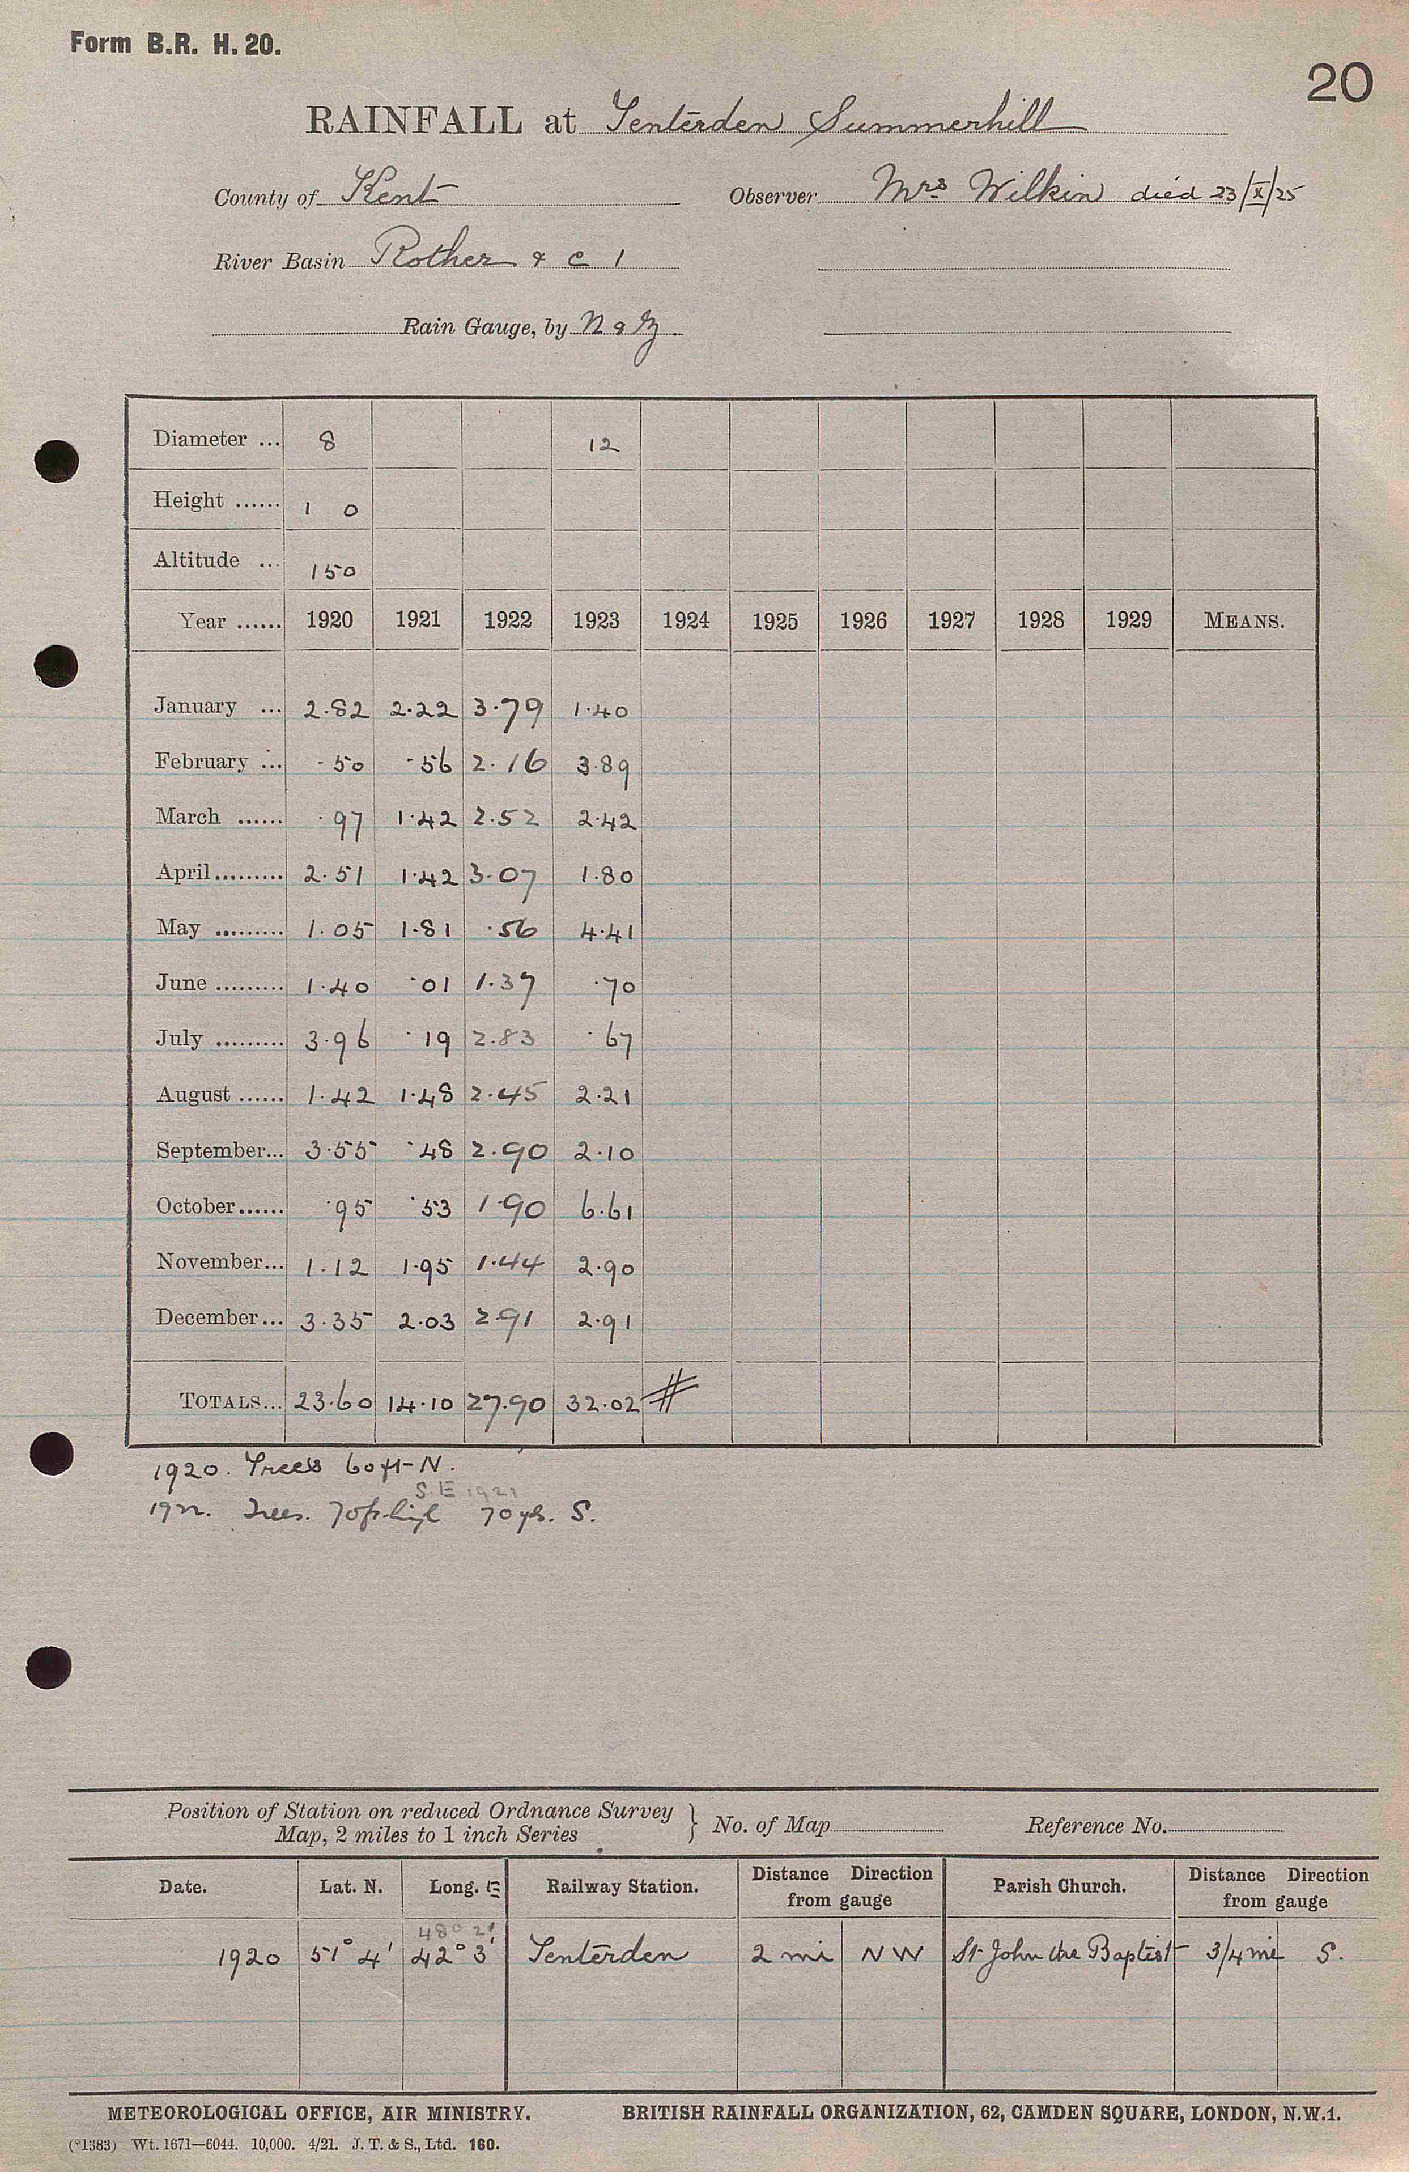 Form B.R. H. 20.
20
RAINFALL at Tenterden Summerhill
County of Kent Observer Mrs Wilkin died 23/X/25
River Basin Rother & c 1
Rain Gauge, by N & Z
Diameter ... 8 12
Height ...... 1 0
Altitude ... 150
Year ...... 1920 1921 1922 1923 1924 1925 1926 1927 1928 1929 MEANS.
January ... 2.82 2.22 3.79 1.40
February ... .50 .56 2.16 3.89
March ...... .97 1.42 2.52 2.42
April ......... 2.51 1.42 3.07 1.80
May ......... 1.05 1.81 .56 4.41
June ......... 1.40 .01 1.37 .70
July ......... 3.96 .19 2.83 .67
August ...... 1.42 1.48 2.45 2.21
September... 3.55 .48 2.90 2.10
October...... .95 .53 1.90 6.61
November... 1.12 1.95 1.44 2.90
December... 3.35 2.03 2.91 2.91
TOTALS... 23.60 14.10 27.90 32.02 #
1920. Trees 60ft N.
S E 1921
1922. Trees. 70ft high 70 yds. S.
Position of Station on reduced Ordnance Survey
Map, 2 miles to 1 inch Series } No. of Map Reference No.
Date. Lat. N. Long. E Railway Station. Distance Direction from gauge Parish Church. Distance Direction from gauge
48° 2'
1920 51° 4' 42° 3' Tenterden 2 mi N W St John the Baptist 3/4 mi S.
METEOROLOGICAL OFFICE, AIR MINISTRY. BRITISH RAINFALL ORGANIZATION, 62, CAMDEN SQUARE, LONDON, N.W.1.
(*1383) Wt. 1671—6044. 10,000. 4/21. J. T. & S., Ltd. 160.